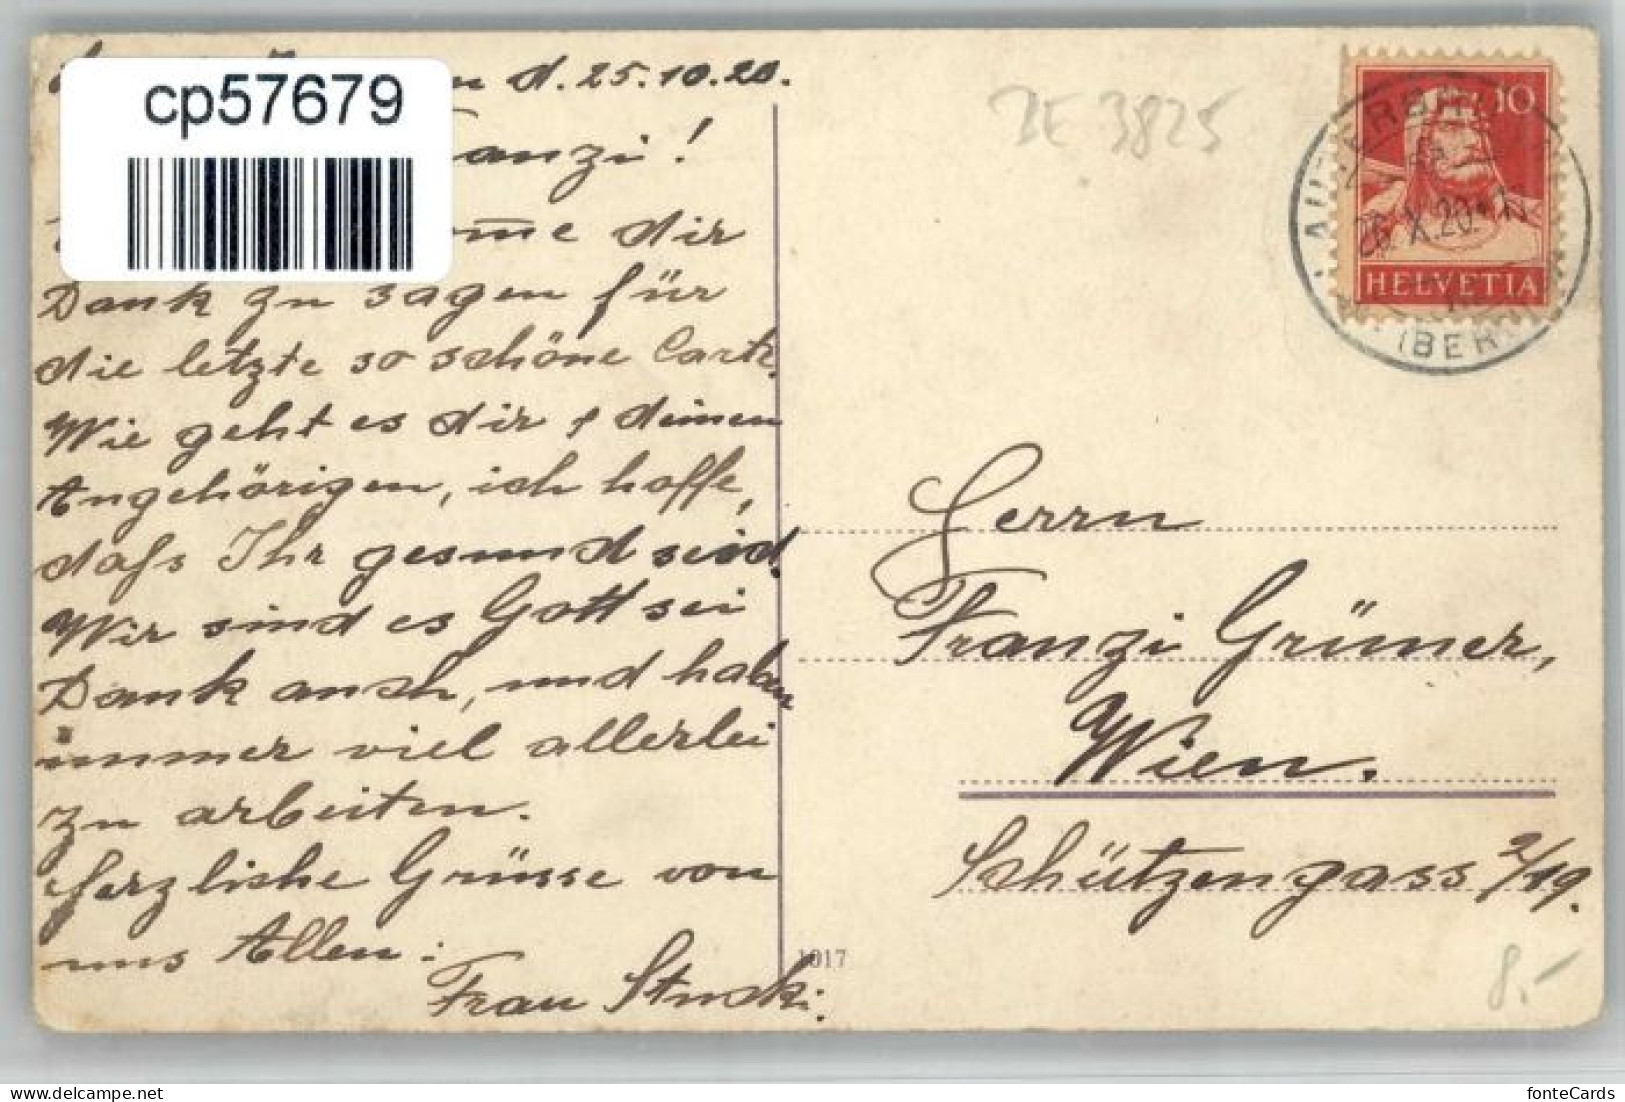 d. 25.10.20.
cp57679
anzi!
dir
Dank zu sagen für
die letzte so schöne Carte.
Wie geht es dir & deinen
Angehörigen, ich hoffe,
dass Ihr gesund seid.
Wir sind es Gott sei
Dank auch, und haben
immer viel allerlei
zu arbeiten.
Herzliche Grüsse von
uns Allen:
Frau Stucki.
3825
10
26. X. 20.
HELVETIA
(BERN)
Herrn
Franzi Grüner,
Wien.
Schützengass 2/19.
1017
8.-
fonteCards